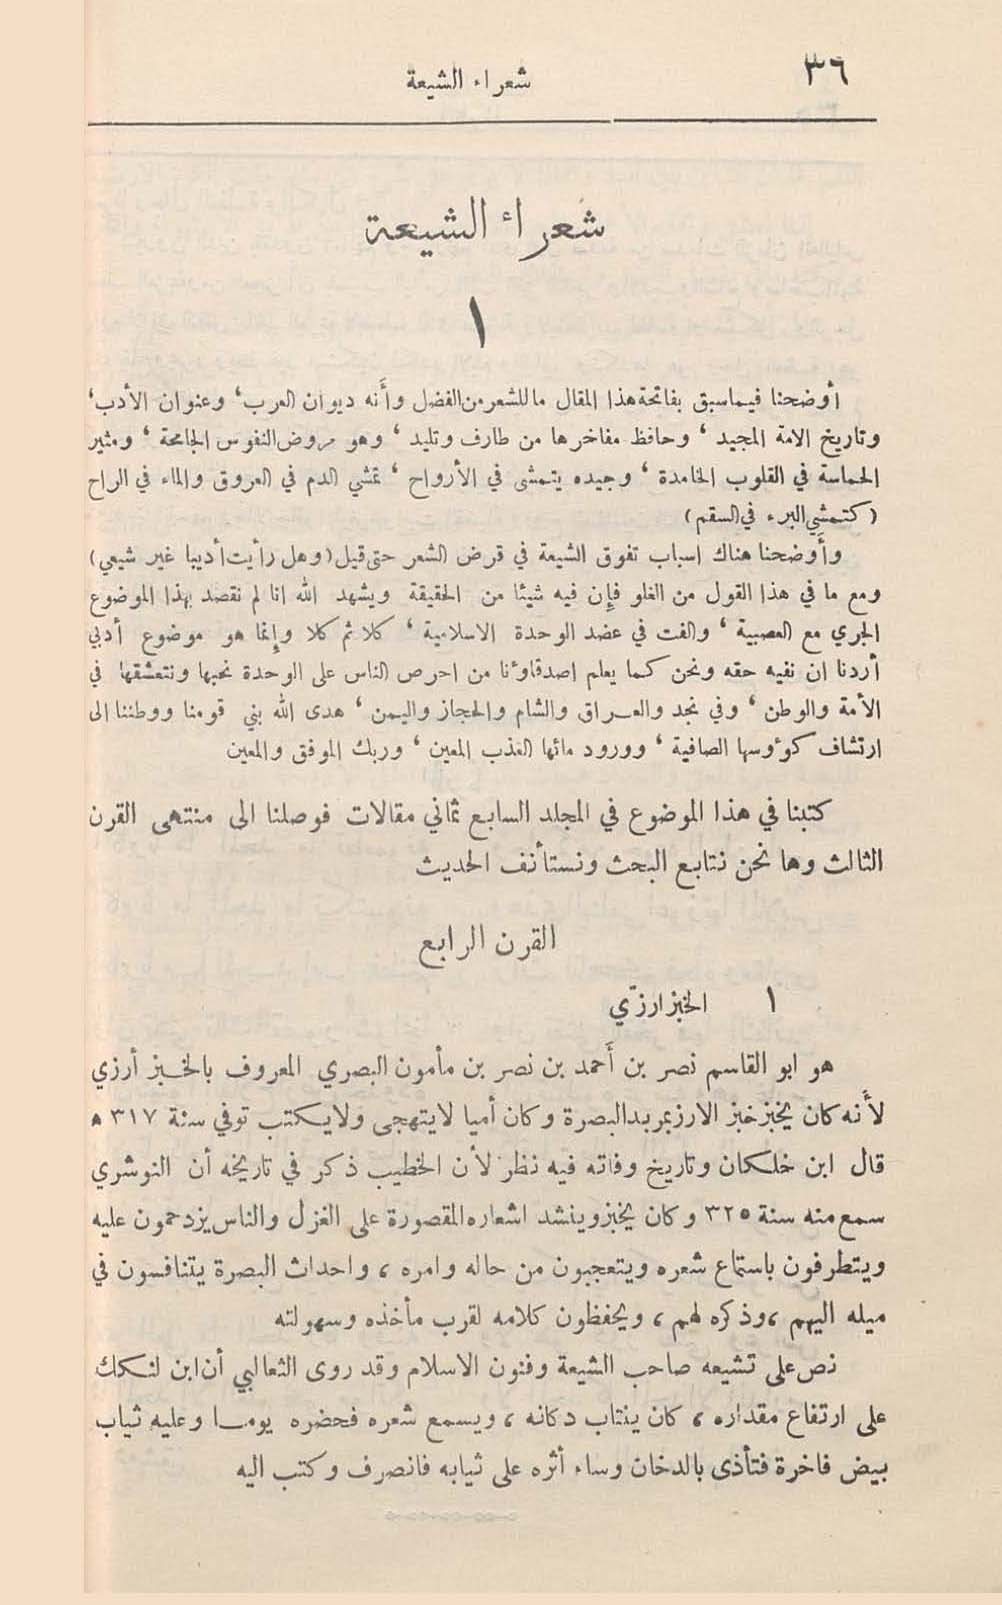 ٣٦
شعراء الشيعة
شعراء الشيعة
١
أوضحنا فيماسبق بفاتحة هذا المقال ما للشعر من الفضل وأنه ديوان العرب ‘ وعنوان الأدب ‘
وتاريخ الامة المجيد ‘ وحافظ مفاخرها من طارف وتليد ‘ وهو مروض النفوس الجامحة ‘ ومثير
الحماسة في القلوب الخامدة ‘ وجيده يتمشى في الأرواح ‘ تمشي الدم في العروق والماء في الراح
( كتمشي البرء في السقم )
وأوضحنا هناك اسباب تفوق الشيعة في قرض الشعر حتى قيل (وهل رأيت أديبا غير شيعي)
ومع ما في هذا القول من الغلو فإن فيه شيئا من الحقيقة ويشهد الله انا لم نقصد بهذا الموضوع
الجري مع العصبية ‘ والفت في عضد الوحدة الاسلامية ‘ كلا ثم كلا وإنما هو موضوع أدبي
أردنا ان نفيه حقه ونحن كما يعلم اصدقاؤنا من احرص الناس على الوحدة نحبها ونتعشقها في
الأمة والوطن ‘ وفي نجد والعراق والشام والحجاز واليمن ‘ هدى الله بني قومنا ووطننا الى
ارتشاف كوؤوسها الصافية ‘ وورود مائها العذب المعين ‘ وربك الموفق والمعين
كتبنا في هذا الموضوع في المجلد السابع ثماني مقالات فوصلنا الى منتهى القرن
الثالث وها نحن نتابع البحث ونستأنف الحديث
القرن الرابع
١ الخبزارزّي
هو ابو القاسم نصر بن أحمد بن نصر بن مأمون البصري المعروف بالخبز أرزي
لأنه كان يخبز خبز الارز بمربد البصرة وكان أميا لايتهجى ولايكتب توفي سنة ٣١٧ ه
قال ابن خلكان وتاريخ وفاته فيه نظر لأن الخطيب ذكر في تاريخه أن النوشري
سمع منه سنة ٣٢٥ وكان يخبز وينشد اشعاره المقصورة على الغزل والناس يزدحمون عليه
ويتطرفون باستماع شعره ويتعجبون من حاله وامره ، واحداث البصرة يتنافسون في
ميله اليهم ، وذكره لهم ، ويحفظون كلامه لقرب مأخذه وسهولته
نص على تشيعه صاحب الشيعة وفنون الاسلام وقد روى الثعالبي أن ابن لنكك
على ارتفاع مقداره ، كان ينتاب دكانه ، ويسمع شعره فحضره يوما وعليه ثياب
بيض فاخرة فتأذى بالدخان وساء أثره على ثيابه فانصرف وكتب اليه